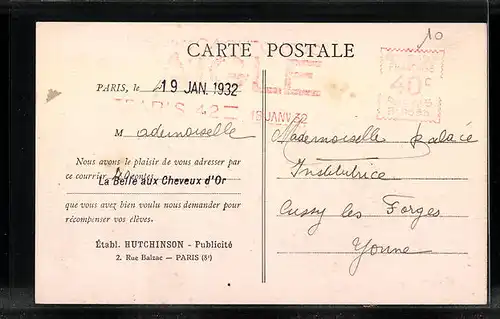 10
CARTE POSTALE
PARIS, le 19 JAN. 1932
PARIS 42
19 JANV 32
40 c
POSTES
Mademoiselle
Nous avons le plaisir de vous adresser par
ce courrier 20 contes
La Belle aux Cheveux d'Or
que vous avez bien voulu nous demander pour
récompenser vos élèves.
Établ. HUTCHINSON - Publicité
2. Rue Balzac — PARIS (8e)
Mademoiselle
Institutrice
Cussy les Forges
Yonne